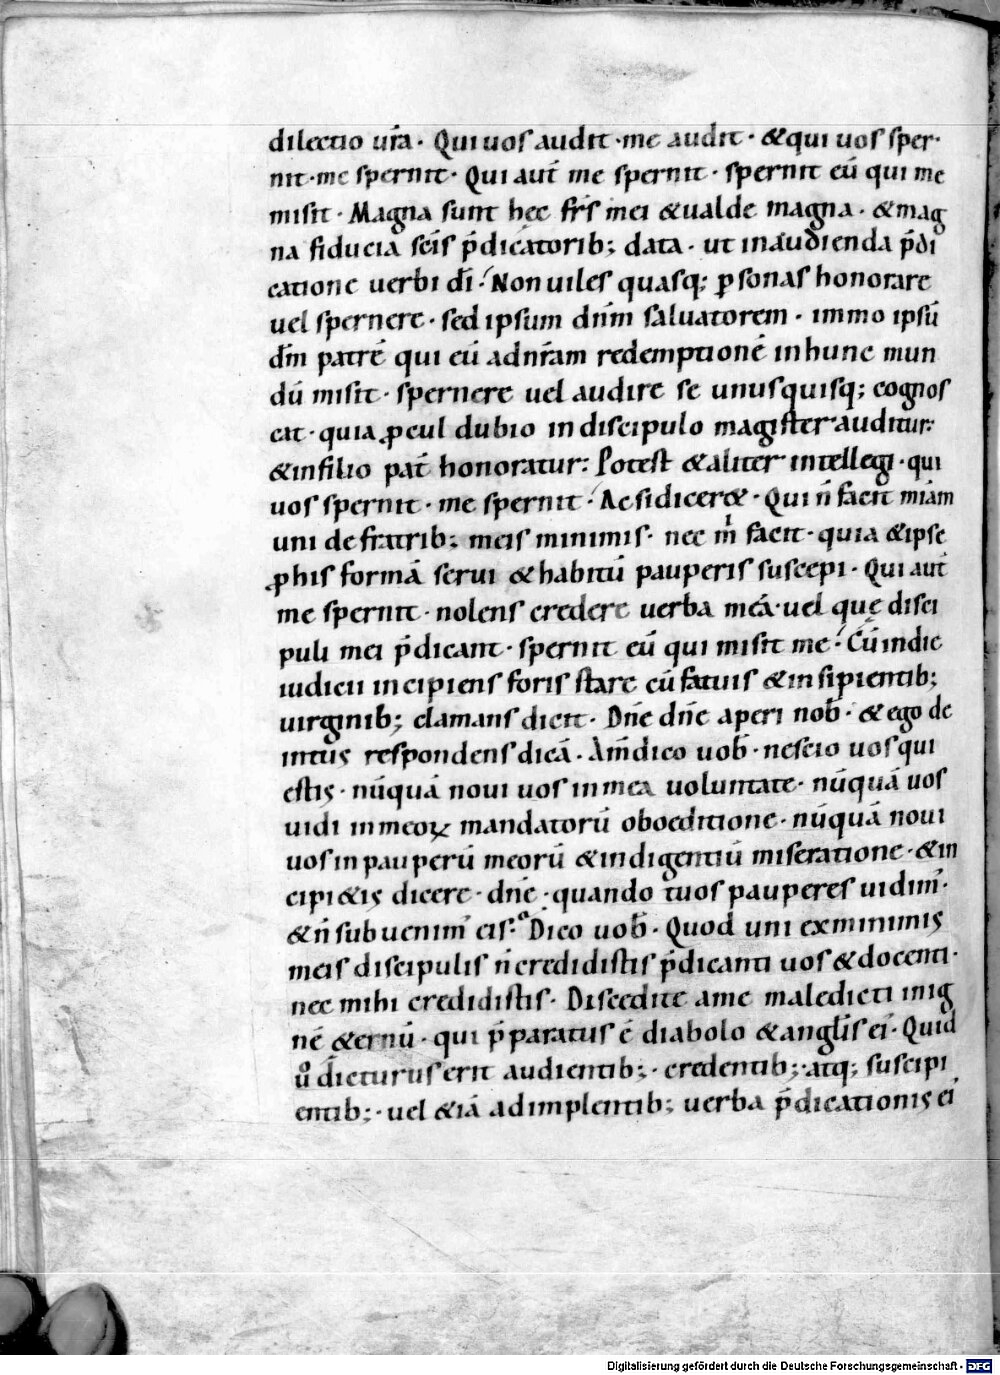 dilectio ur̄a · Qui uos audit · me audit · &qui uos sper·
nit · me spernit · Qui aut̄ me spernit · spernit eū qui me
misit · Magna sunt hęc fr̄s mei &ualde magna · &mag
na fiducia sc̄is p̄dicatorib; data · ut inaudienda p̄di
catione uerbi dī · Non uiles quasq; ꝑsonas honorare
uel spernere · sed ipsum dn̄m saluatorem · immo ipsū
dm̄ patrē qui eū adnr̄am redemptionē inhunc mun
dū misit · spernere uel audire se unusquisq; cognos
cat · quia ꝓcul dubio indiscipulo magister auditur:
&infilio pat̄ honoratur: Potest &aliter intellegi · qui
uos spernit · me spernit · Ac sidicer& · Qui n̄ facit mīam
uni defratrib; meis minimis · nec m̄ facit · quia &ipse
ꝓhis formā serui &habitū pauperis suscepi · Qui aut̄
me spernit · nolens credere uerba mea · uel quę disci
puli mei p̄dicant · spernit eū qui misit me · Cū indie
iudicii incipiens foris stare cū fatuis &insipientib;
uirginib; clamans dicit · Dn̄e dn̄e aperi nob̄ · &ego de
intus respondens dicā · Am̄ dico uob̄ · nescio uos qui
estis · nūquā noui uos inmea uoluntate · nūquā uos
uidi inmeoꝝ mandatorū oboeditione · nūquā noui
uos inpauperū meorū &indigentiū miseratione · &in
cipi&is dicere · dn̄e · quando tuos pauperes uidim̄ ·
&n̄ subuenim̄ eis: Dico uob̄ · Quod uni exminimis
meis discipulis n̄ credidistis p̄dicanti uos &docenti ·
nec mihi credidistis · Discedite ame maledicti inig
nē &ernū · qui p̄paratus ē diabolo &angl̄is ei᾽ · Quid
u̾ dicturus erit audientib; · credentib; · atq; suscipi
entib; · uel &iā adimplentib; uerba p̄dicationis ei᾽
Digitalisierung gefördert durch die Deutsche Forschungsgemeinschaft - DFG